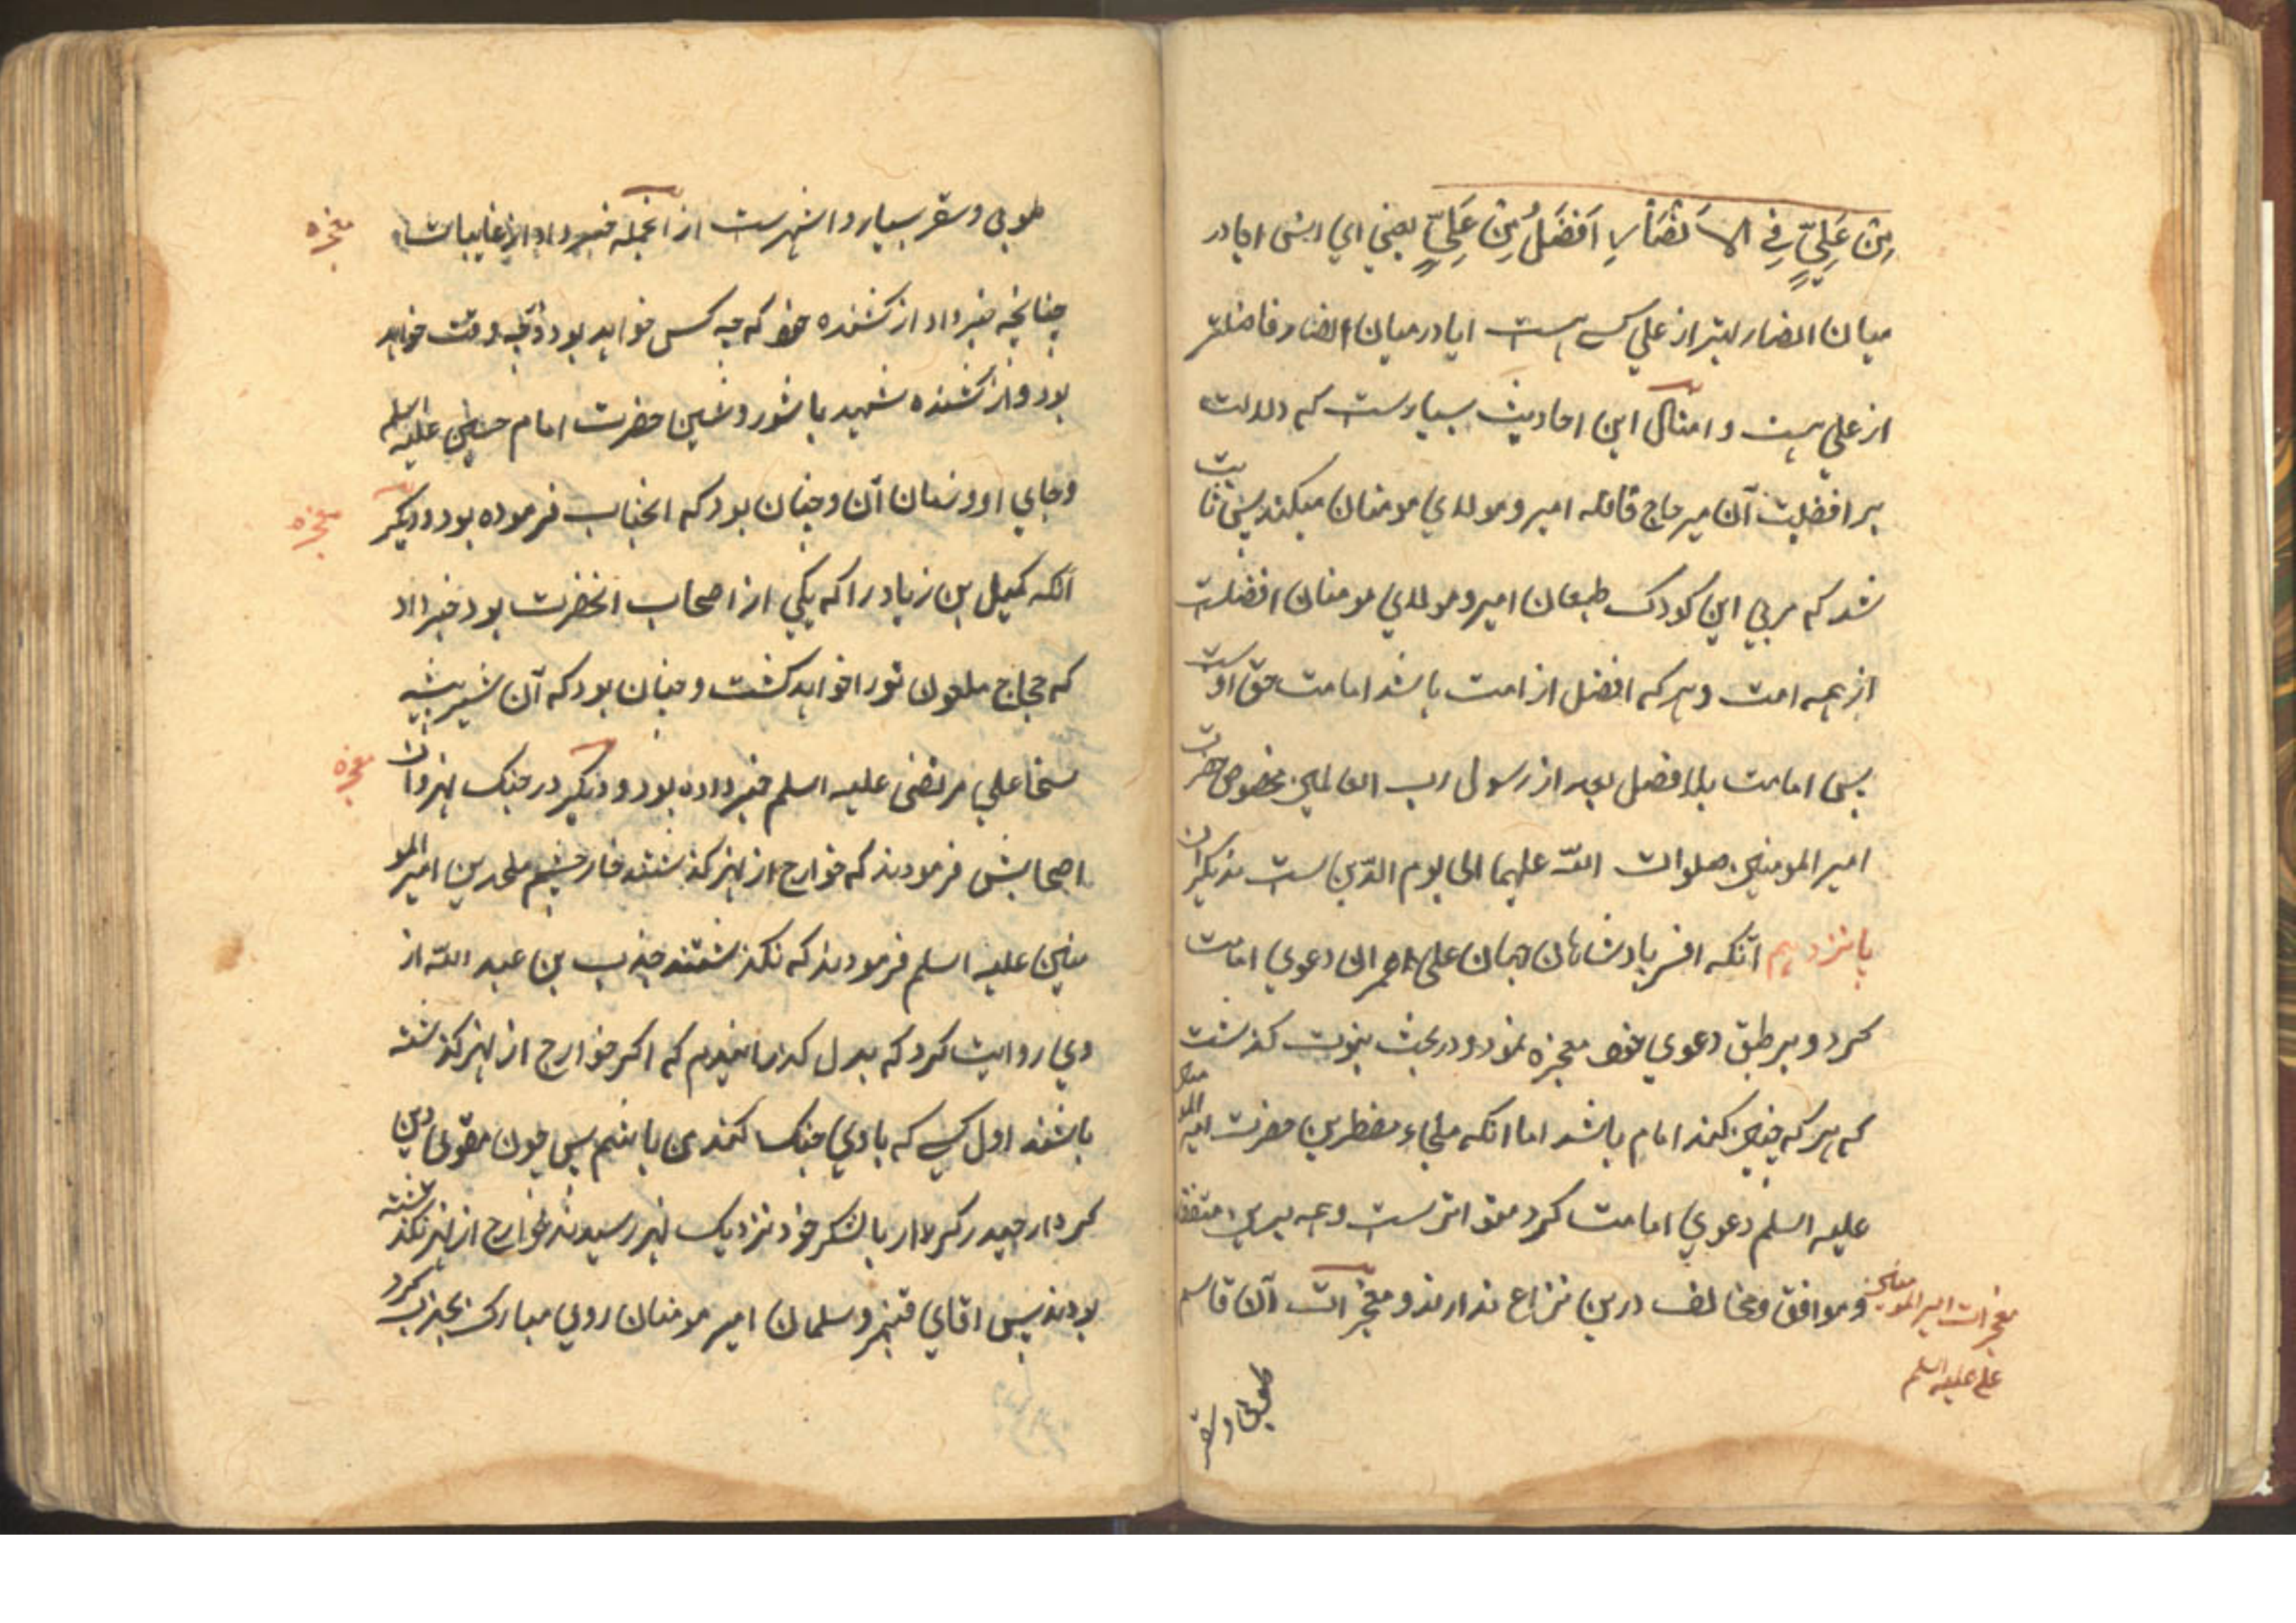 مِنْ عَلِيٍّ فِي الاَنْصَارِ اَفْضَلُ مِنْ عَلِيٍّ يعني اي انس ايا در
ميان انصار بهتر از علي كس هست ايا در ميان انصار فاضلتر
از علي هست و امثال اين احاديث بسيارست كه دلالت
بر افضليت آن مير حاج قافله امير و مولاي مومنان ميكند پس ثابت
شد كه مربي اين كودك طبعان امير و مولاي مومنان افضلست
از همه امت و هر كه افضل از امت باشد امامت حق اوست
پس امامت بلا فصل بعد از رسول رب العالمين مخصوص حضرت
امير المومنين صلوات اللّه عليهما الى يوم الدّين ست نه ديگران
پانزدهم آنكه افسر پادشاهان جهان علي عمران دعوي امامت
كرد و بر طبق دعوي خود معجزه نمود و در بحث نبوت كذشت
كه هر كه چنين كند امام باشد اما انكه ملجاء مضطرين حضرت امير المومنين
عليه السلم دعوي امامت كرد متواترست و همه برين متفق
و موافق و مخالف درين نزاع ندارند و معجزات آن قاسم
معجزات امير المومنين
علي عليه السلم
طوبي و سقر
طوبي و سقر بسيار و اشهرست از انجمله خبر داد از غايبات
معجزه
چنانچه خبر داد از كشنده خود كه چه كس خواهد بود و چه وقت خواهد
بود و از كشنده شهيد با شور و شين حضرت امام حسين عليه السلم
و جاي او و زمان آن و چنان بود كه انجناب فرموده بود و ديكر
معجزه
آنكه كميل بن زياد را كه يكي از اصحاب انحضرت بود خبر داد
كه حجاج ملعون تو را خواهد كشت و چنان بود كه آن شير بيشه
سخا علي مرتضى عليه السلم خبر داده بود و ديكر در جنك نهروان
معجزه
اصحابش فرمودند كه خوارج از نهر كذشتند خار چشم ملحدين امير المو
منين عليه السلم فرمودند كه نكذشتند جندب بن عبد اللّه از
دي روايت كرد كه بدل كذرانيدم كه اكر خوارج از نهر كذشته
باشند اول كسي كه با وي جنك كند من باشم پس چون مقوي دين
كردار حيدر كرار با لشكر خود نزديك نهر رسيدند خوارج از نهر نكذشته
بودند پس اقاي قنبر و سلمان امير مومنان روي مبارك بجندب كرد